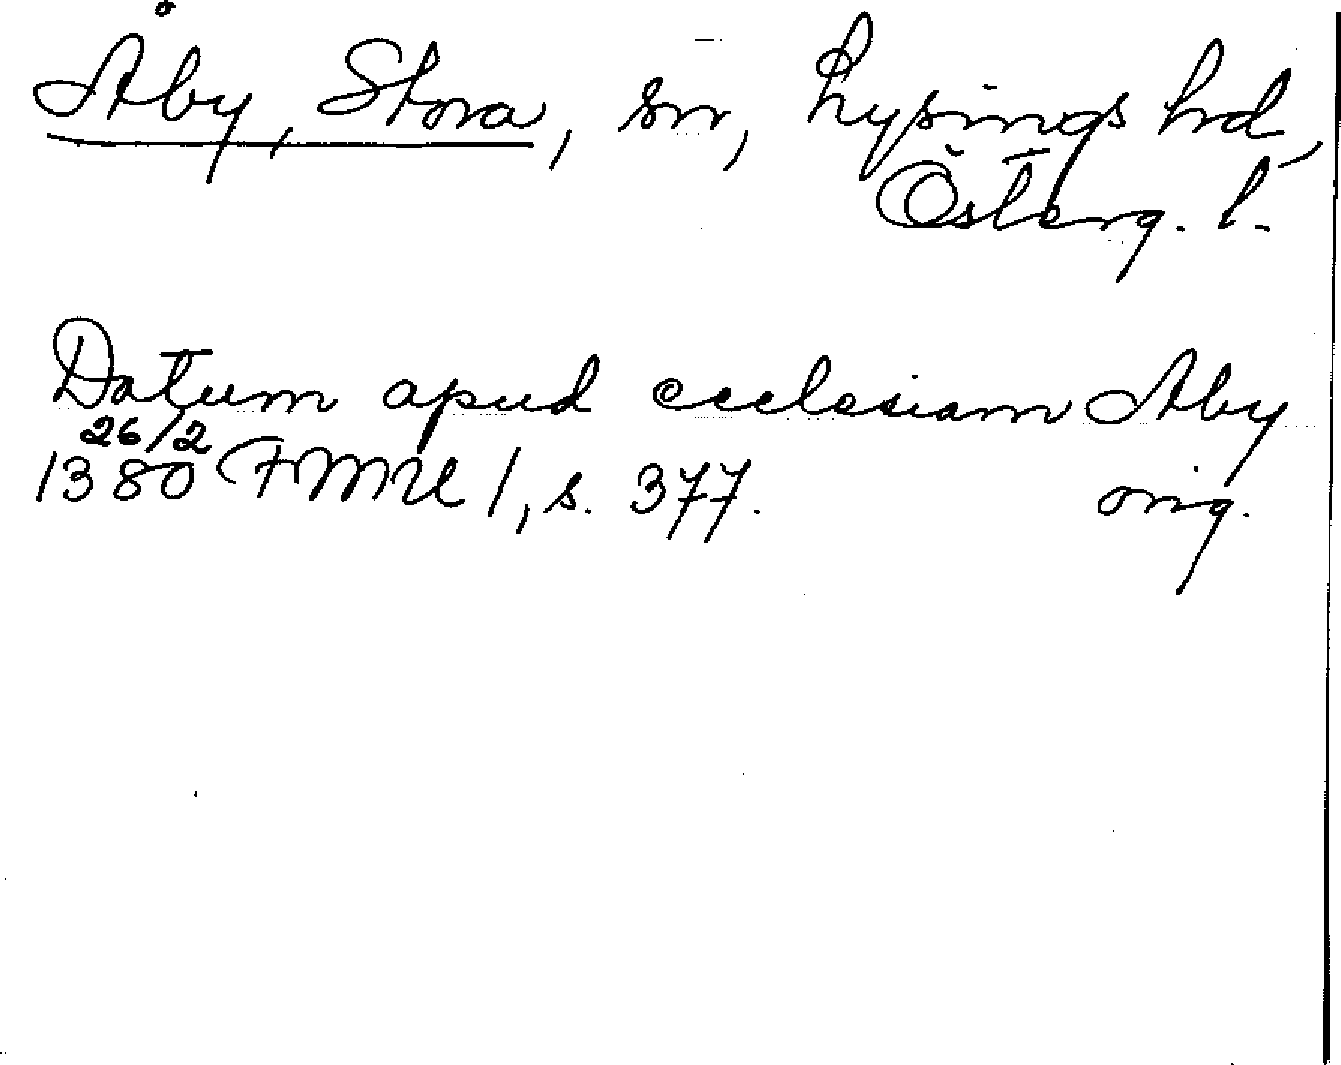 Åby, Stora, sn, Lysings hd,
Österg. l.
Datum apud ecclesiam Aby
26/2
1380 FMU 1, s. 377. orig.